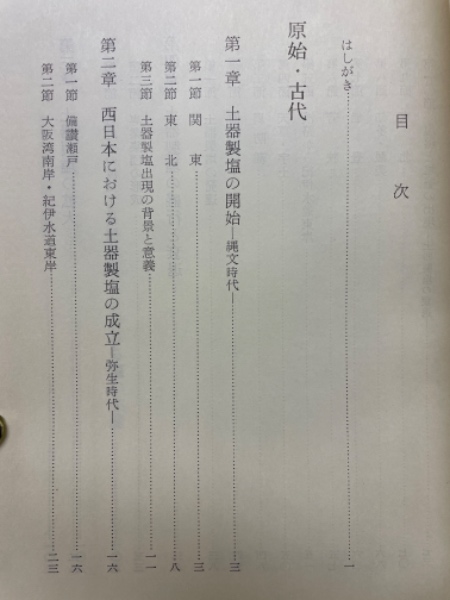 目次
はしがき……一
原始・古代
第一章 土器製塩の開始―縄文時代―……三
第一節 関東……三
第二節 東北……八
第三節 土器製塩出現の背景と意義……一一
第二章 西日本における土器製塩の成立―弥生時代―……一六
第一節 備讃瀬戸……一六
第二節 大阪湾南岸・紀伊水道東岸……二三